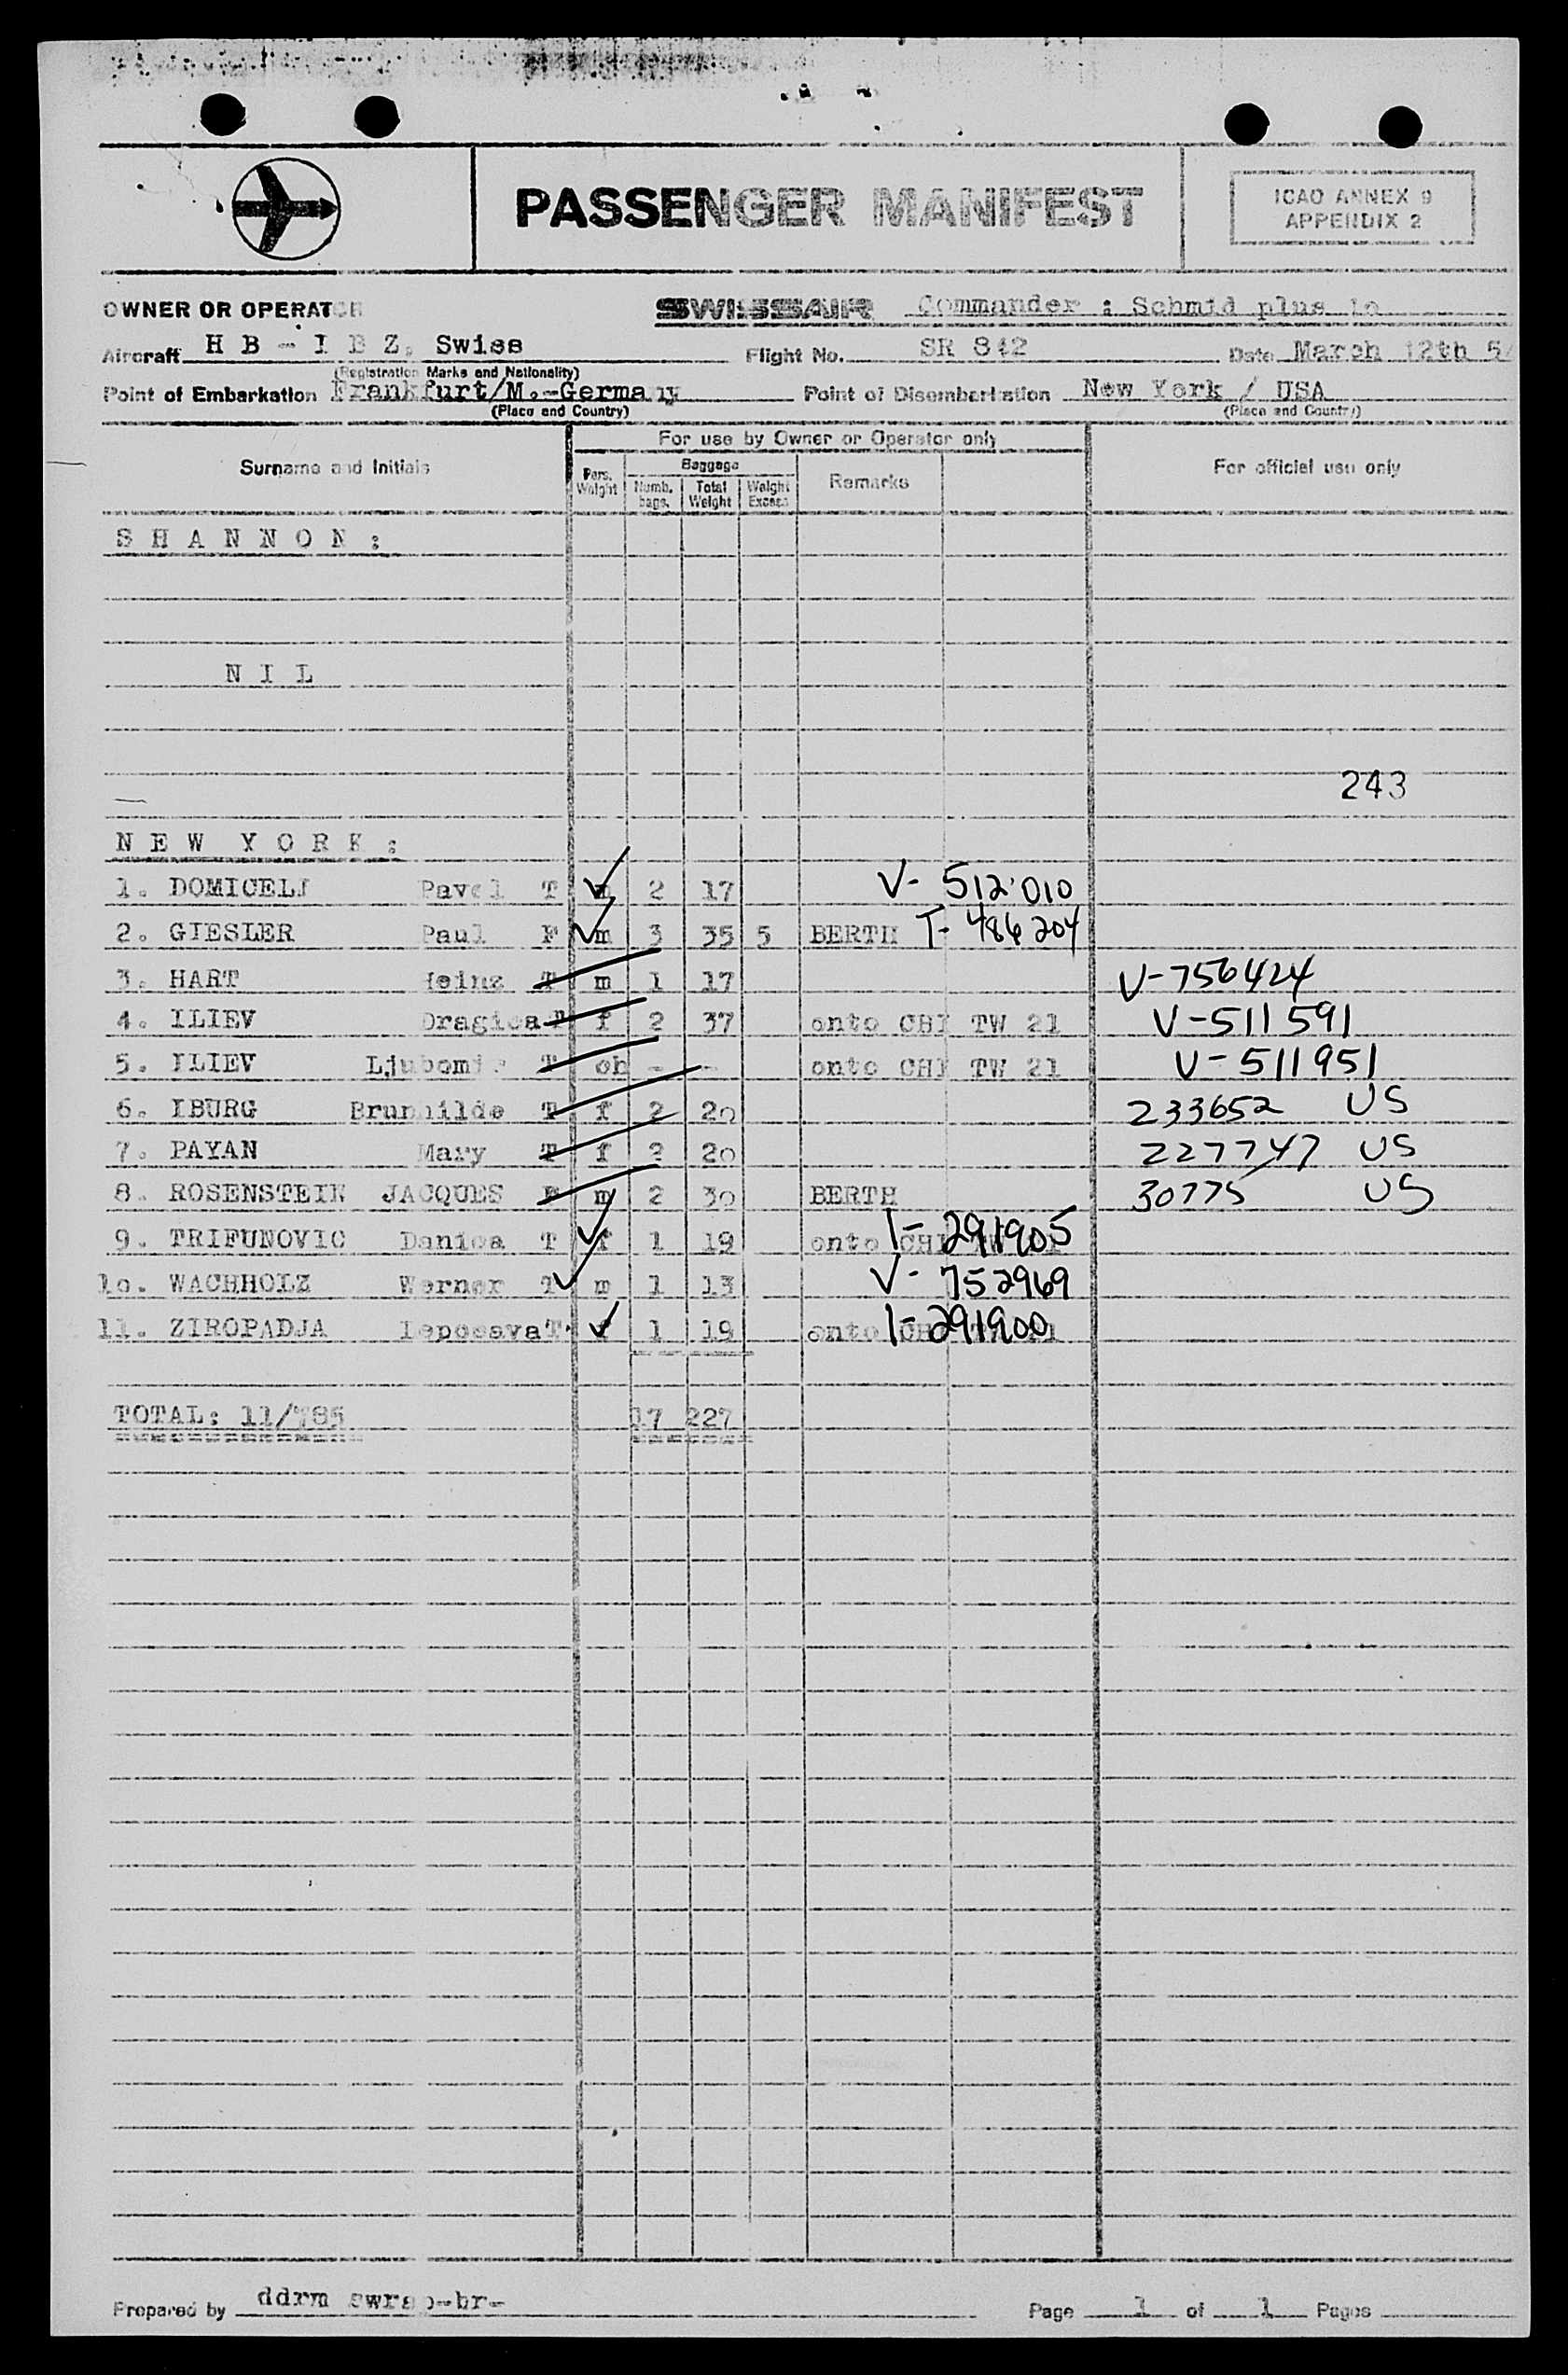 PASSENGER MANIFEST
ICAO ANNEX 9
APPENDIX 2
OWNER OR OPERATOR SWISSAIR Commander : Schmid plus 1o
Aircraft H B - I B Z, Swiss Flight No. SR 842 Date March 12th 5
(Registration Marks and Nationality)
Point of Embarkation Frankfurt/M.-Germany Point of Disembarkation New York / USA
(Place and Country) (Place and Country)
For use by Owner or Operator only
Surname and Initials Pers. Weight Baggage Remarks For official use only
Numb. bags. Total Weight Weight Excess
S H A N N O N :
N I L
243
N E W Y O R K :
1. DOMICELJ Pavel T m 2 17 V- 512010
2. GIESLER Paul F m 3 35 5 BERTH T- 486204
3. HART Heinz T m 1 17 V-756424
4. ILIEV Dragica T f 2 37 onto CHI TW 21 V-511591
5. ILIEV Ljubomir T ch - - onto CHI TW 21 V-511951
6. IBURG Brunhilde T f 2 2o 233652 US
7. PAYAN Mary T f 2 2o 227747 US
8. ROSENSTEIN JACQUES F m 2 3o BERTH 30775 US
9. TRIFUNOVIC Danica T f 1 19 onto CHI I-291905
1o. WACHHOLZ Werner T m 1 13 V- 752969
11. ZIROPADJA Leposava T f 1 19 onto CHI 21 I-291900
TOTAL: 11/785 17 227
Prepared by ddrm swrap-br- Page 1 of 1 Pages